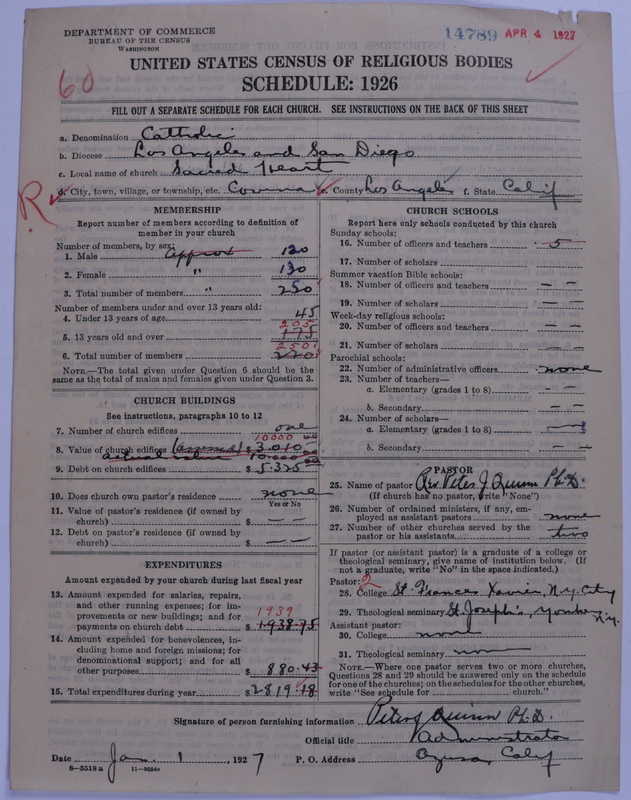 DEPARTMENT OF COMMERCE
BUREAU OF THE CENSUS
WASHINGTON
14789 APR 4 1927
UNITED STATES CENSUS OF RELIGIOUS BODIES
SCHEDULE: 1926
60
FILL OUT A SEPARATE SCHEDULE FOR EACH CHURCH. SEE INSTRUCTIONS ON THE BACK OF THIS SHEET
a. Denomination Catholic
b. Diocese Los Angeles and San Diego
c. Local name of church Sacred Heart
R
d. City, town, village, or township, etc. Covina e. County Los Angeles f. State Calif
MEMBERSHIP
Report number of members according to definition of
member in your church
Number of members, by sex:
1. Male approx 120
2. Female " 130
3. Total number of members " 250
Number of members under and over 13 years old:
4. Under 13 years of age 45
205
5. 13 years old and over 175
250
6. Total number of members 220
NOTE.—The total given under Question 6 should be
same as the total of males and females given under Question 3.
CHURCH BUILDINGS
See instructions, paragraphs 10 to 12
7. Number of church edifices one
10000
8. Value of church edifices (assessed) $ 3.010
actual value 10.000.00
9. Debt on church edifices $ 5.325
10. Does church own pastor's residence none
Yes or No
11. Value of pastor's residence (if owned by
church) $ — —
12. Debt on pastor's residence (if owned by
church) $ — —
EXPENDITURES
Amount expended by your church during last fiscal year
13. Amount expended for salaries, repairs,
and other running expenses; for im-
provements or new buildings; and for
1939
payments on church debt $ 1938.75
14. Amount expended for benevolences, in-
cluding home and foreign missions; for
denominational support; and for all
other purposes $ 880.43
15. Total expenditures during year $ 2819.18
CHURCH SCHOOLS
Report here only schools conducted by this church
Sunday schools:
16. Number of officers and teachers 5
17. Number of scholars
Summer vacation Bible schools:
18. Number of officers and teachers — —
19. Number of scholars — —
Week-day religious schools:
20. Number of officers and teachers — —
21. Number of scholars — —
Parochial schools:
22. Number of administrative officers none
23. Number of teachers—
a. Elementary (grades 1 to 8) — —
b. Secondary — —
24. Number of scholars—
a. Elementary (grades 1 to 8)
b. Secondary — —
PASTOR
25. Name of pastor Rev. Peter J Quinn Ph.D.
(If church has no pastor, write "None")
26. Number of ordained ministers, if any, em-
ployed as assistant pastors none
27. Number of other churches served by the
pastor or his assistants two
If pastor (or assistant pastor) is a graduate of a college or
theological seminary, give name of institution below. (If
not a graduate, write "No" in the space indicated.)
Pastor: 2
28. College St. Frances Xavier, N.Y. City
29. Theological seminary St. Joseph's, Yonkers
N.Y.
Assistant pastor:
30. College none
31. Theological seminary none
NOTE.—Where one pastor serves two or more churches,
Questions 28 and 29 should be answered only on the schedule
for one of the churches; on the schedules for the other churches,
write "See schedule for church."
Signature of person furnishing information Peter J Quinn Ph.D.
Official title Administrator
Date Jan. 1, 1927 P. O. Address Azusa, Calif
8—5518 a 11—9054